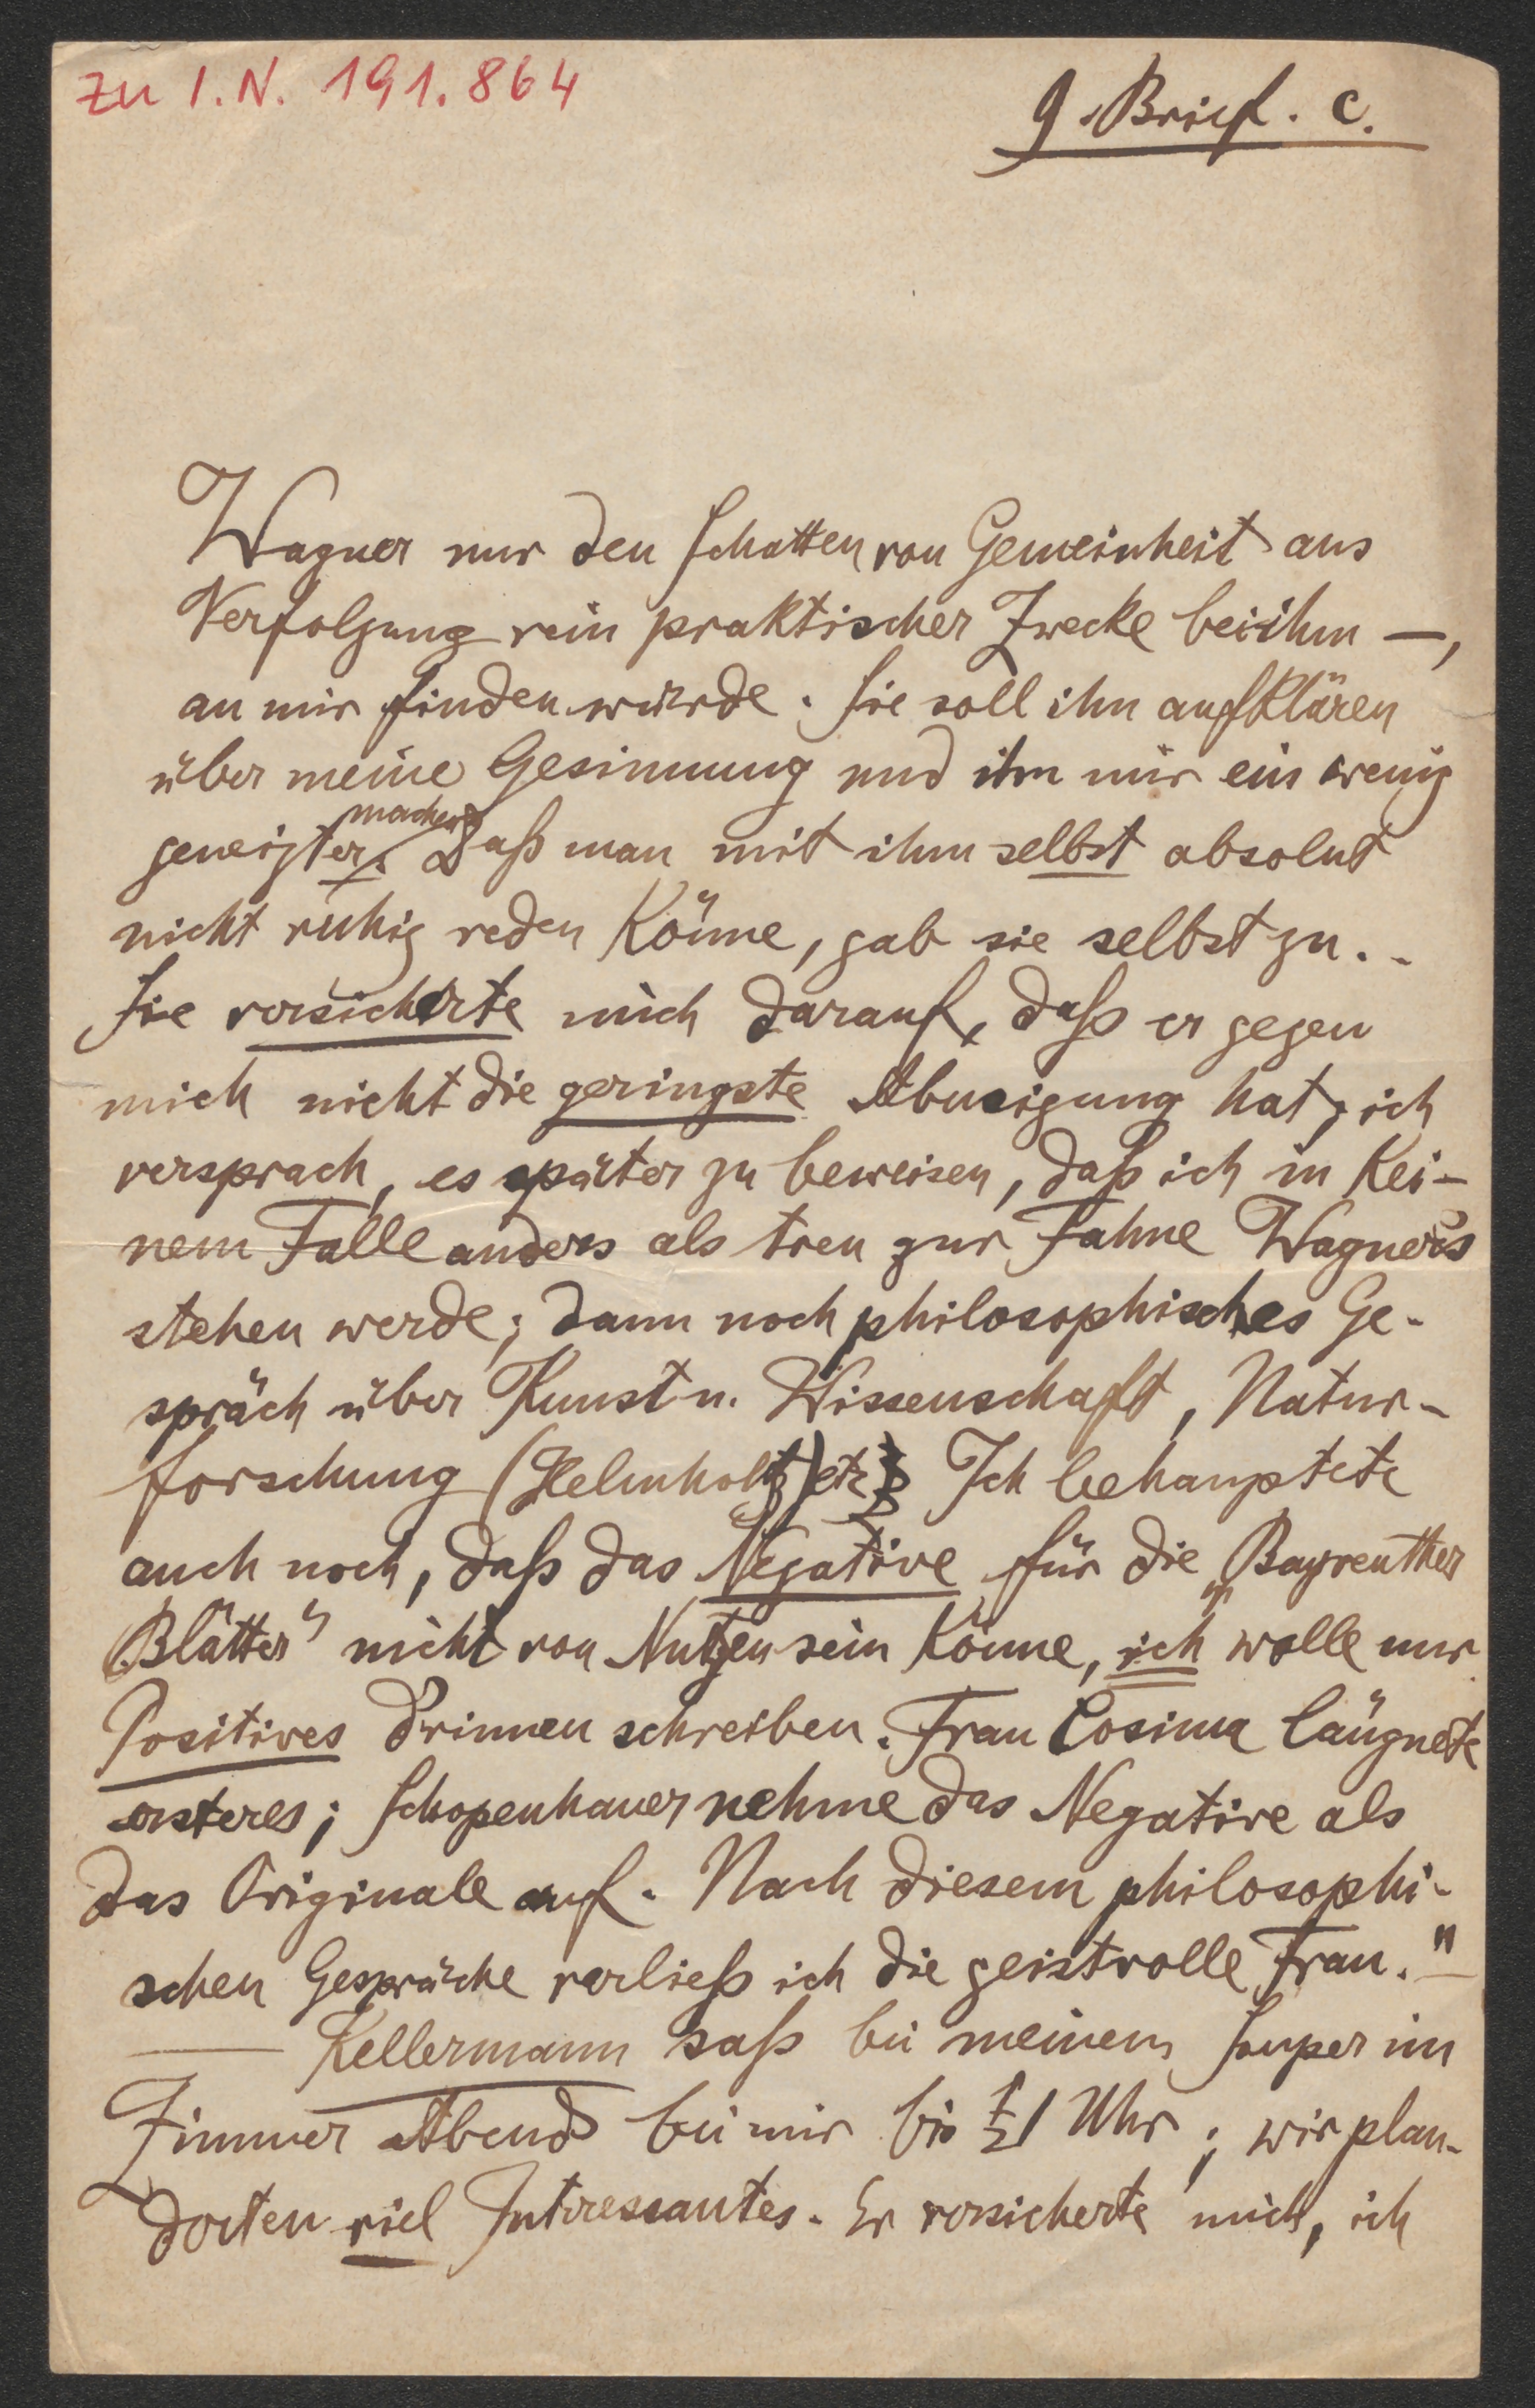 zu I.N. 191.864
9. Brief. c.
Wagner nur den Schatten von Gemeinheit aus
Verfolgung rein praktischer Zwecke bei ihm —,
an mir finden würde. Sie soll ihn aufklären
über meine Gesinnung und ihn mir ein wenig
machen
geneigter. Daß man mit ihm selbst absolut
nicht ruhig reden könne, gab sie selbst zu..
Sie versicherte mich darauf, daß er gegen
mich nicht die geringste Abneigung hat; ich
versprach, es später zu beweisen, daß ich in kei-
nem Falle anders als treu zur Fahne Wagners
stehen werde; dann noch philosophisches Ge-
spräch über Kunst u. Wissenschaft, Natur-
forschung (Helmholtz) etc. Ich behauptete
auch noch, daß das Negative für die „Bayreuther
Blätter" nicht von Nutzen sein könne, ich wolle nur
Positives drinnen schreiben. Frau Cosima läugnete
ersteres; Schopenhauer nehme das Negative als
das Originale auf. Nach diesem philosophi-
schen Gespräche verließ ich die geistvolle Frau."—
— Kellermann saß bei meinem Souper im
Zimmer Abend bei mir bis ½1 Uhr; wir plau-
derten viel Interessantes. Er versicherte mich, ich